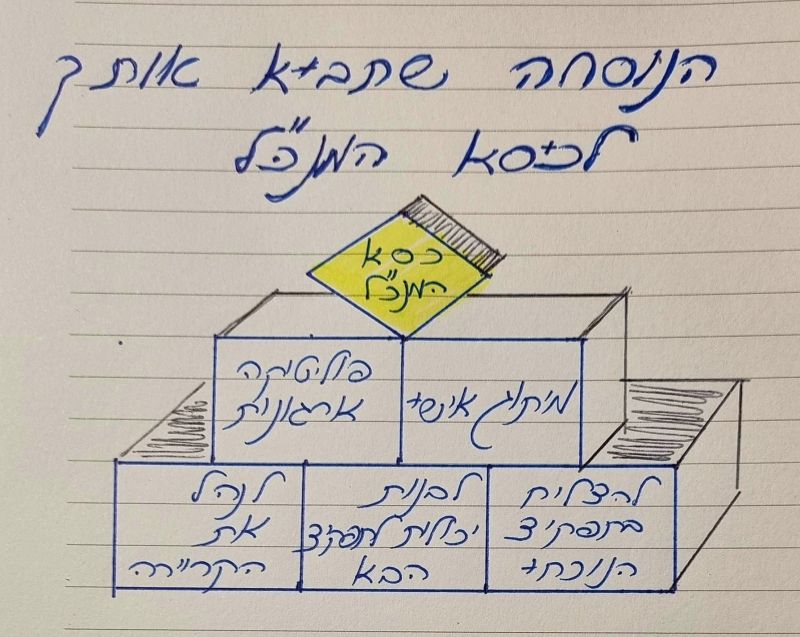 הנוסחה שתביא אותך
לכיסא המנכ"ל
כסא
המנכ"ל
פוליטיקה
ארגונית
מיתוג אישי
להצליח
בתפקיד
הנוכחי
לבנות
יכולות לתפקיד
הבא
לנהל
את
הקריירה